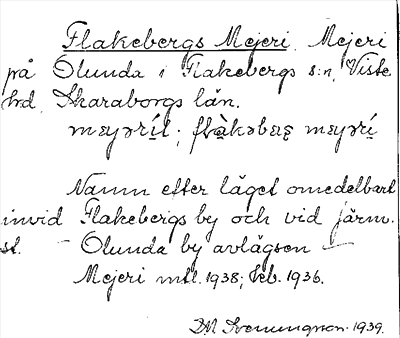 Flakebergs Mejeri. Mejeri
på Ölunda i Flakebergs s:n, Viste
hd, Skaraborgs län.
mɛyərí̱t; flàkəbɛrs mɛyərí̱
Namn efter läget omedelbart
invid Flakebergs by och vid järnv.
st. – Ölunda by avlägsen –
Mejeri mtl. 1938; Keb. 1936.
D.N. Svenungsson. 1939.